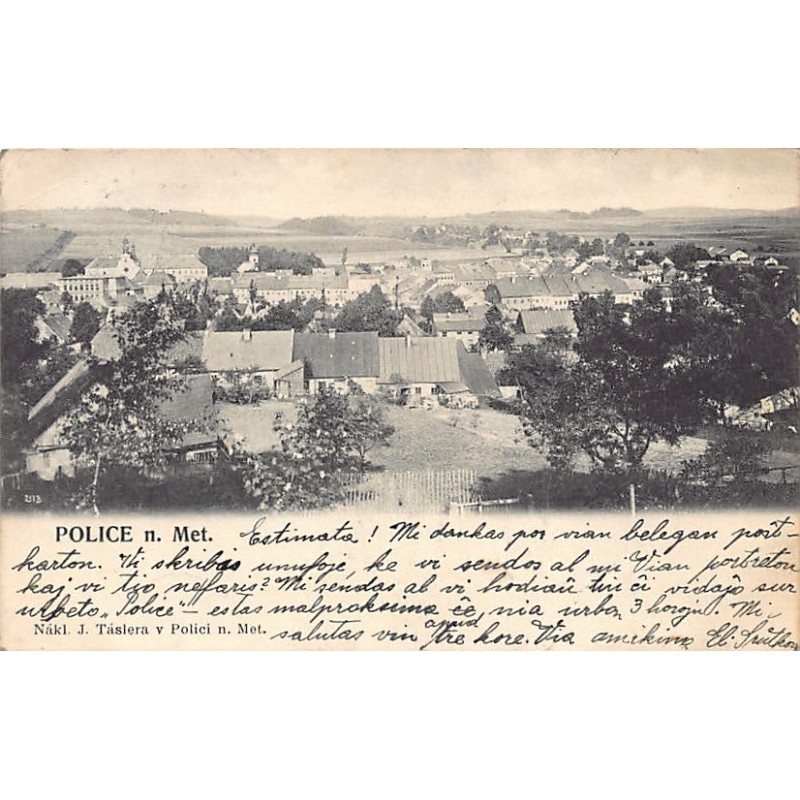 2113
POLICE n. Met. Estimata! Mi dankas por vian belegan poŝt-
karton. Vi skribas unufoje, ke vi sendos al mi Vian portreton
kaj vi tio nefaris? Mi sendas al vi hodiaŭ tiu ĉi vidaĵo sur
urbeto „Police" — estas malproksima ĉe nia urbo 3 horoju. Mi
salutas vin apud tre kore. Via amikino El.
Nákl. J. Táslera v Polici n. Met.